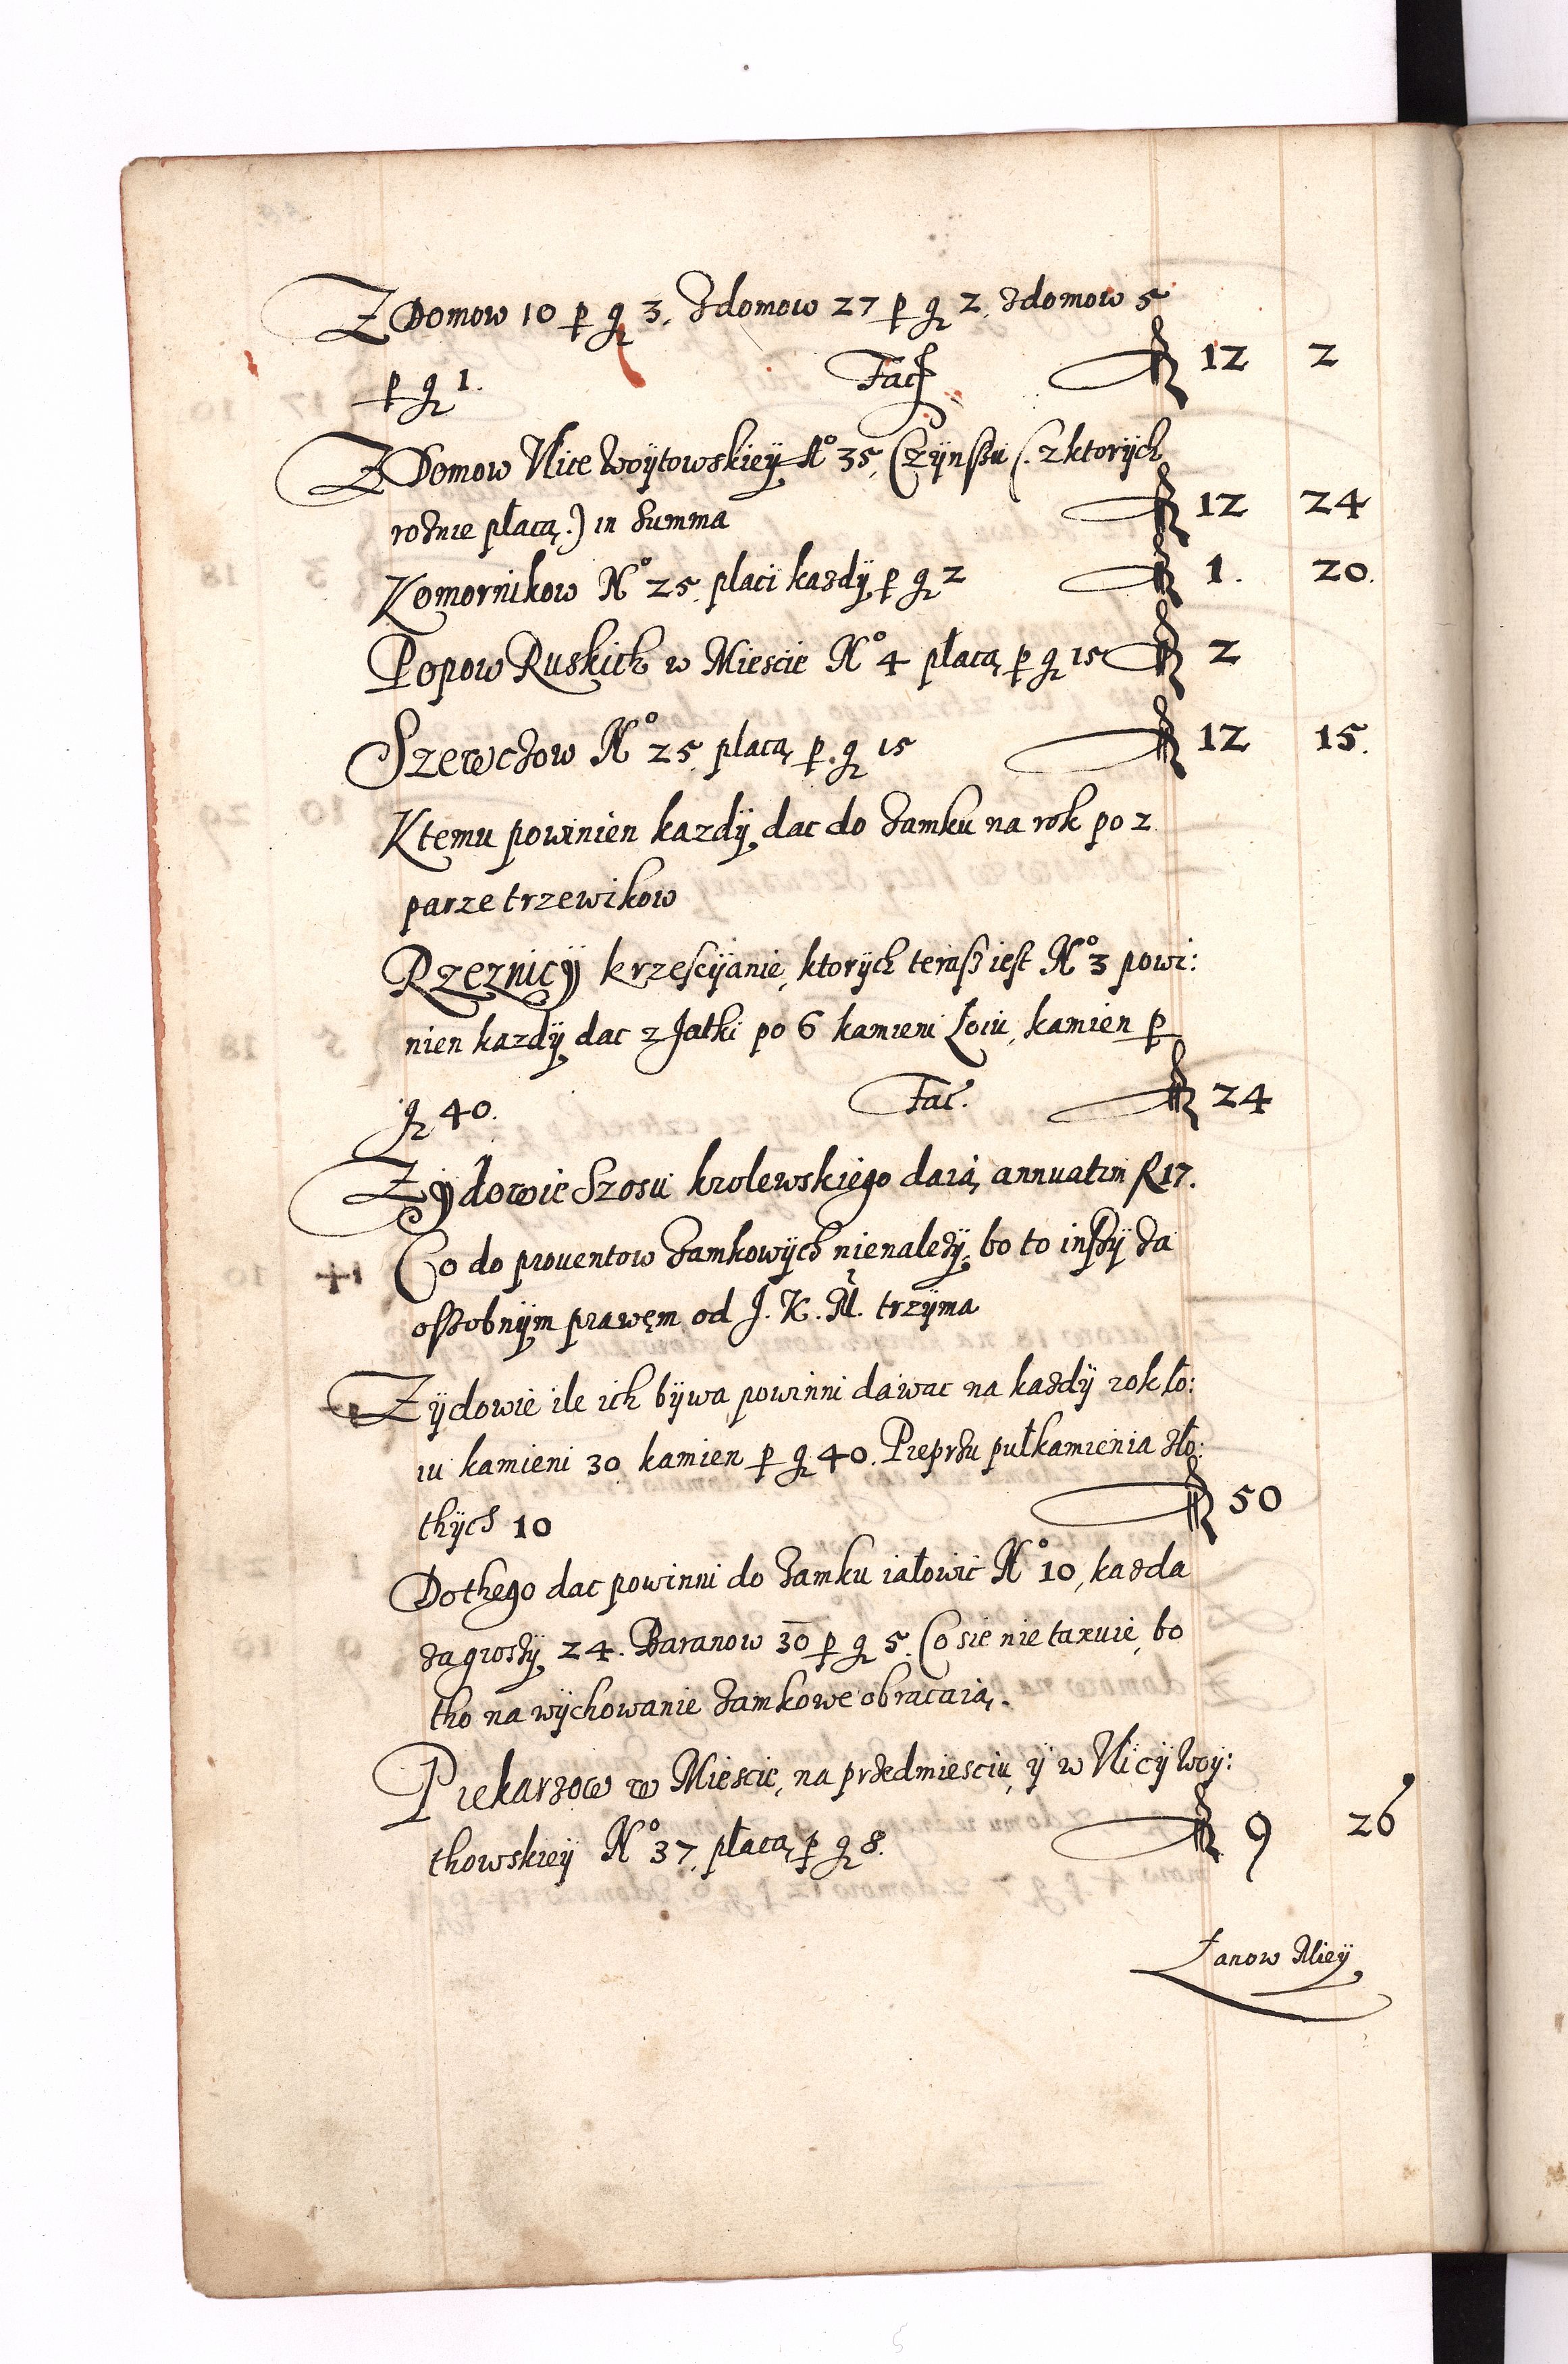 Z Domow 10 p gr 3, z domow 27 p gr 2, z domow 5
p gr 1. Facit fl 12 2
Z Domow Ulice Woÿtowskieÿ No 35, Czÿnszu (. z ktorÿch
roznie płacą.) in summa fl 12 24
Komornikow No 25, placi kazdÿ p gr 2 fl 1. 20.
Popow Ruskich w Miescie No 4 płacą p gr 15 fl 2
Szewczow No 25, placą p. gr 15 fl 12 15.
K temu powinien kazdÿ dac do Zamku na rok po 2
parze trzewikow
Rzeznicÿ krzescÿanie, ktorÿch terasz iest No 3 powi:
nien kazdÿ dac z Jatki po 6 kamieni Łoiu, kamien p
gr 40. Fac. fl 24
Zydowie Szosu krolewskiego daią annuatim fl 17.
+ Co do prouentow Zamkowÿch nienalezÿ, bo to inszÿ za
osobnÿm prawęm od J. K. M. trzÿma
Zÿdowie ile ich bÿwa powinni dawac na kazdÿ rok ło:
iu kamieni 30 kamien p gr 40. Pieprzu pułkamienia zło:
thÿch 10 fl 50
Do thego dac powinni do Zamku iałowic No 10, kazda
za groszÿ 24. Baranow 30 p gr 5. Co sie nie taxuie, bo
tho na wÿchowanie Zamkowe obracaią.
Piekarzow w Miescie, na przedmiesciu, ÿ w Ulicÿ Woÿ:
thowskieÿ No 37, płacą p gr 8. fl 9 26
Łanow Mieÿ